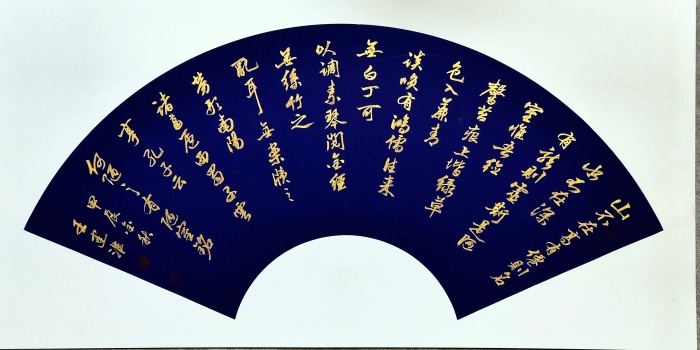 山不在高有僊則名
水不在深
有龍則靈斯是陋
室惟吾德
馨苔痕上階緑草
色入簾青
談笑有鴻儒往来
無白丁可
以調素琴閲金經
無絲竹之
亂耳無案牘之
勞形南陽
諸葛廬西蜀子雲
亭孔子云
何陋之有陋室銘
甲辰秋
王建